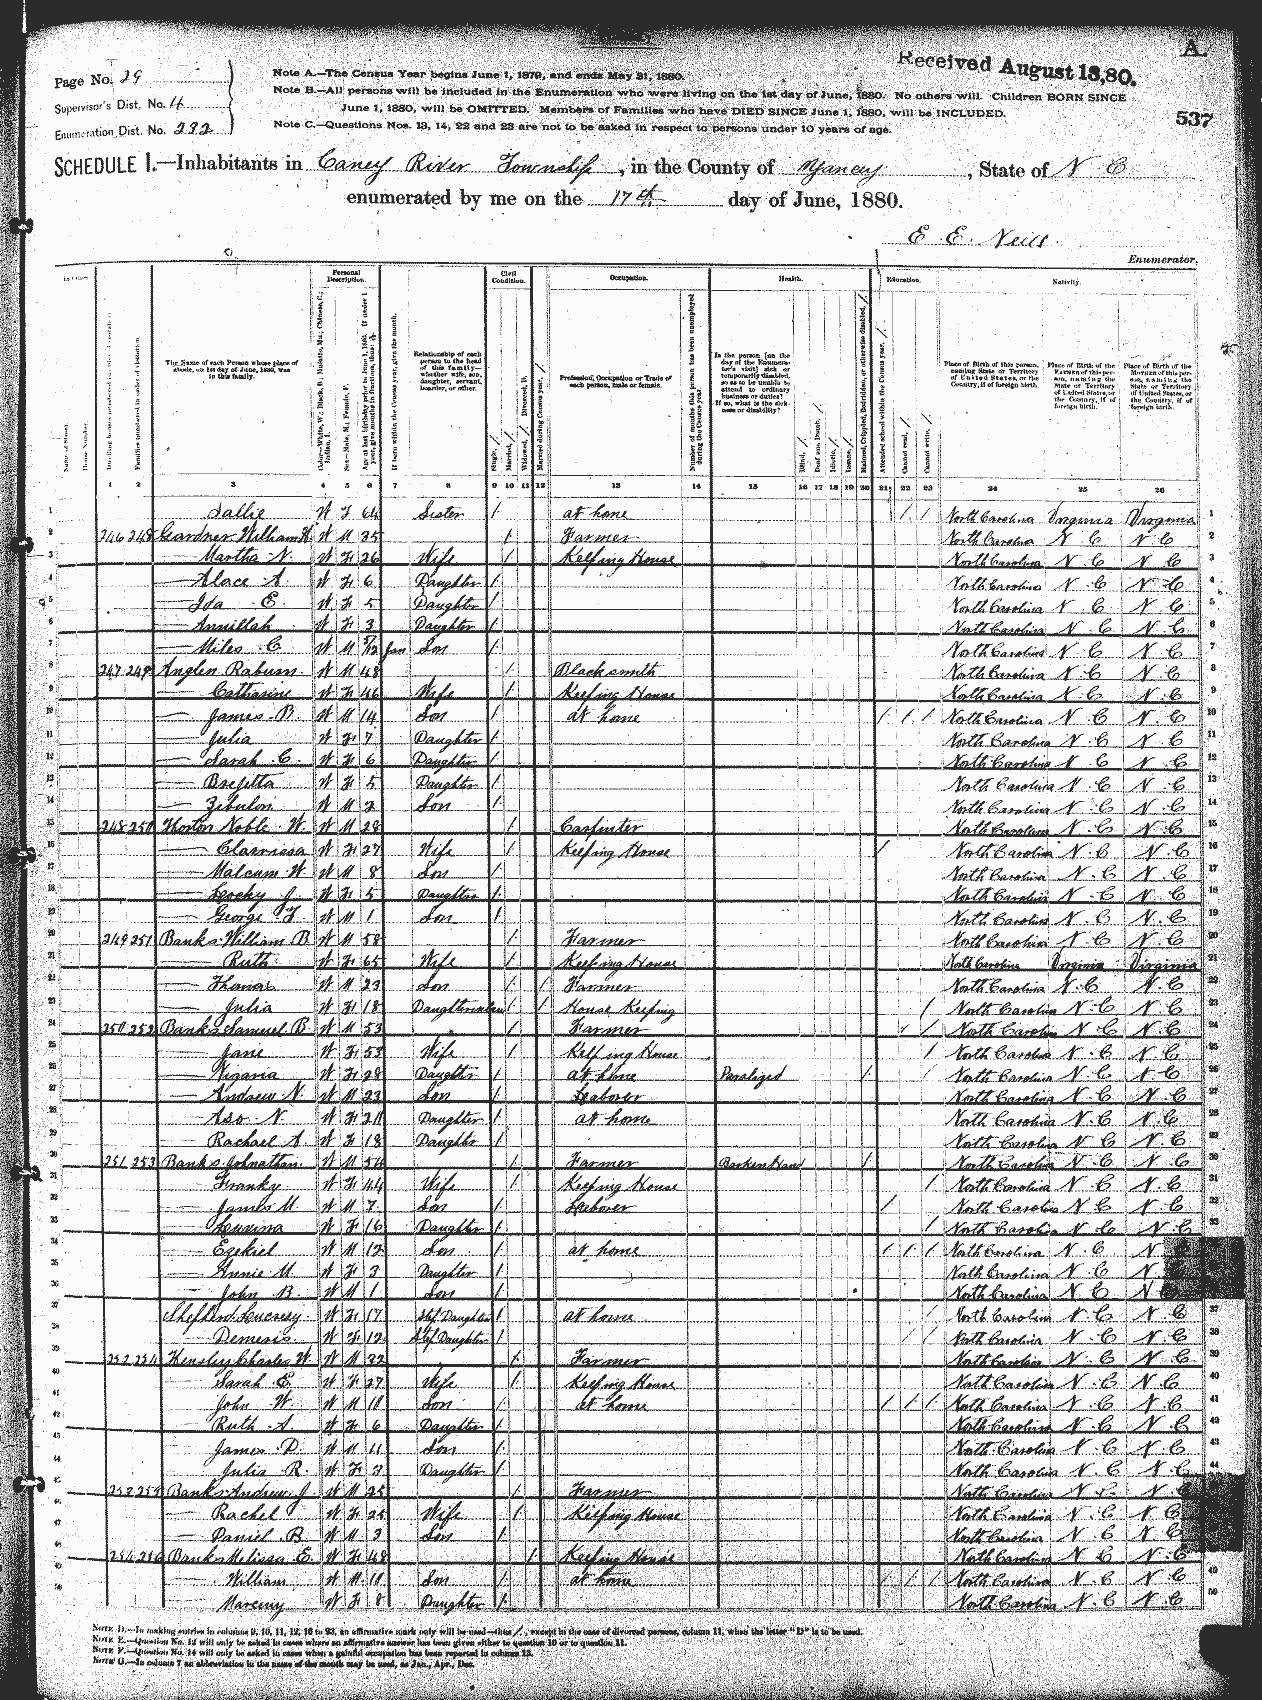 A.
Page No. 29
Supervisor's Dist. No. 4
Enumeration Dist. No. 232
Note A.—The Census Year begins June 1, 1879, and ends May 31, 1880.
Note B.—All persons will be included in the Enumeration who were living on the 1st day of June, 1880. No others will. Children BORN SINCE
June 1, 1880, will be OMITTED. Members of Families who have DIED SINCE June 1, 1880, will be INCLUDED.
Note C.—Questions Nos. 13, 14, 22 and 23 are not to be asked in respect to persons under 10 years of age.
Received August 13, 80.
537
SCHEDULE 1.—Inhabitants in Caney River Township, in the County of Yancey, State of N C
enumerated by me on the 17th day of June, 1880.
E. E. Neill
Enumerator.
Personal Description. Civil Condition. Occupation. Health. Education. Nativity.
The Name of each Person whose place of abode, on 1st day of June, 1880, was in this family.
Relationship of each person to the head of this family—whether wife, son, daughter, servant, boarder, or other.
Profession, Occupation or Trade of each person, male or female.
Place of Birth of this person, naming State or Territory of United States, or the Country, if of foreign birth.
1 2 3 4 5 6 7 8 9 10 11 12 13 14 15 16 17 18 19 20 21 22 23 24 25 26
1 Sallie W F 64 Sister / at home / / North Carolina Virginia Virginia 1
2 246 248 Gardner William H. W M 25 / Farmer North Carolina N C N C 2
3 — Martha N. W F 26 Wife / Keeping House North Carolina N C N C 3
4 — Alace A W F 6 Daughter / North Carolina N C N C 4
5 — Ida E. W F 5 Daughter / North Carolina N C N C 5
6 — Annillah W F 3 Daughter / North Carolina N C N C 6
7 — Miles C W M 5/12 Jan Son / North Carolina N C N C 7
8 247 249 Anglen Raburn W M 48 / Blacksmith North Carolina N C N C 8
9 — Catharine W F 46 Wife / Keeping House North Carolina N C N C 9
10 — James B. W M 14 Son / at home / / / North Carolina N C N C 10
11 — Julia W F 7 Daughter / North Carolina N C N C 11
12 — Sarah C. W F 6 Daughter / North Carolina N C N C 12
13 — W F 5 Daughter / North Carolina N C N C 13
14 — Zebulon W M 2 Son / North Carolina N C N C 14
15 248 250 Horton Noble W. W M 28 / Carpinter North Carolina N C N C 15
16 — Clarrissa W F 27 Wife / Keeping House / North Carolina N C N C 16
17 — Malcum W W M 8 Son / North Carolina N C N C 17
18 — Locky J. W F 5 Daughter / North Carolina N C N C 18
19 — George F. W M 1 Son / North Carolina N C N C 19
20 249 251 Banks William B W M 58 / Farmer North Carolina N C N C 20
21 — Ruth W F 65 Wife / Keeping House North Carolina Virginia Virginia 21
22 — Thomas W M 23 Son / / Farmer North Carolina N C N C 22
23 — Julia W F 18 Daughterinlaw / / House Keeping / North Carolina N C N C 23
24 250 252 Banks Samuel B. W M 53 / Farmer / / North Carolina N C N C 24
25 — Jane W F 53 Wife / Keeping House / North Carolina N C N C 25
26 — W F 28 Daughter / at home Paralized / / North Carolina N C N C 26
27 — Andrew N. W M 23 Son / Laborer North Carolina N C N C 27
28 — Aso N. W F 20 Daughter / at home North Carolina N C N C 28
29 — Rachael A W F 18 Daughter / North Carolina N C N C 29
30 251 253 Banks Johnathan W M 54 / Farmer Broken Hand / North Carolina N C N C 30
31 — Franky W F 44 Wife / Keeping House / North Carolina N C N C 31
32 — James M W M 7 Son / Laborer / North Carolina N C N C 32
33 — Luvina W F 16 Daughter / / North Carolina N C N C 33
34 — Ezekiel W M 12 Son / at home / / / North Carolina N C N C
35 — Annie M W F 3 Daughter / North Carolina N C N C
36 — John B. W M 1 Son / North Carolina N C N C
37 Shepherd Lucresy W F 17 Step Daughter / at home / North Carolina N C N C 37
38 — Demeris W F 12 Step Daughter / / North Carolina N C N C 38
39 252 254 Hensley Charles W. W M 32 / Farmer North Carolina N C N C 39
40 — Sarah E. W F 27 Wife / Keeping House North Carolina N C N C 40
41 — John W. W M 10 Son / at home / / / North Carolina N C N C 41
42 — Ruth A. W F 6 Daughter / North Carolina N C N C 42
43 — James D. W M 4 Son / North Carolina N C N C 43
44 — Julia R. W F 2 Daughter / North Carolina N C N C 44
45 253 255 Banks Andrew J. W M 25 / Farmer North Carolina N C N C
46 — Rachel W F 25 Wife / Keeping House North Carolina N C N C
47 — Daniel B. W M 3 Son / North Carolina N C N C
48 254 256 Banks Melissa E. W F 48 / Keeping House North Carolina N C N C
49 — William W M 10 Son / at home / / / North Carolina N C N C 49
50 — W F 8 Daughter / North Carolina N C N C 50
Note D.—In making entries in columns 9, 10, 11, 12, 16 to 23, an affirmative mark only will be used—thus /, except in the case of divorced persons, column 11, when the letter "D" is to be used.
Note E.—Question No. 12 will only be asked in cases where an affirmative answer has been given either to question 10 or to question 11.
Note F.—Question No. 14 will only be asked in cases when a gainful occupation has been reported in column 13.
Note G.—In column 7 an abbreviation in the name of the month may be used, as Jan., Apr., Dec.